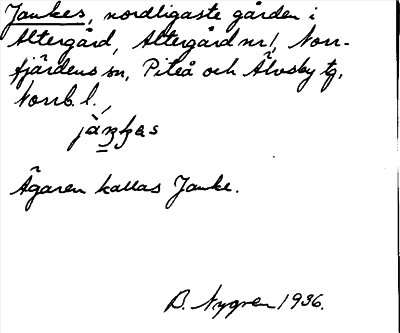 Jankes, nordligaste gården i
Altergård, Altergård nr 1, Norr-
fjärdens sn, Piteå och Älvsby tg,
Norrb. l.,
Ägaren kallas Janke.
B. Nygren 1936.